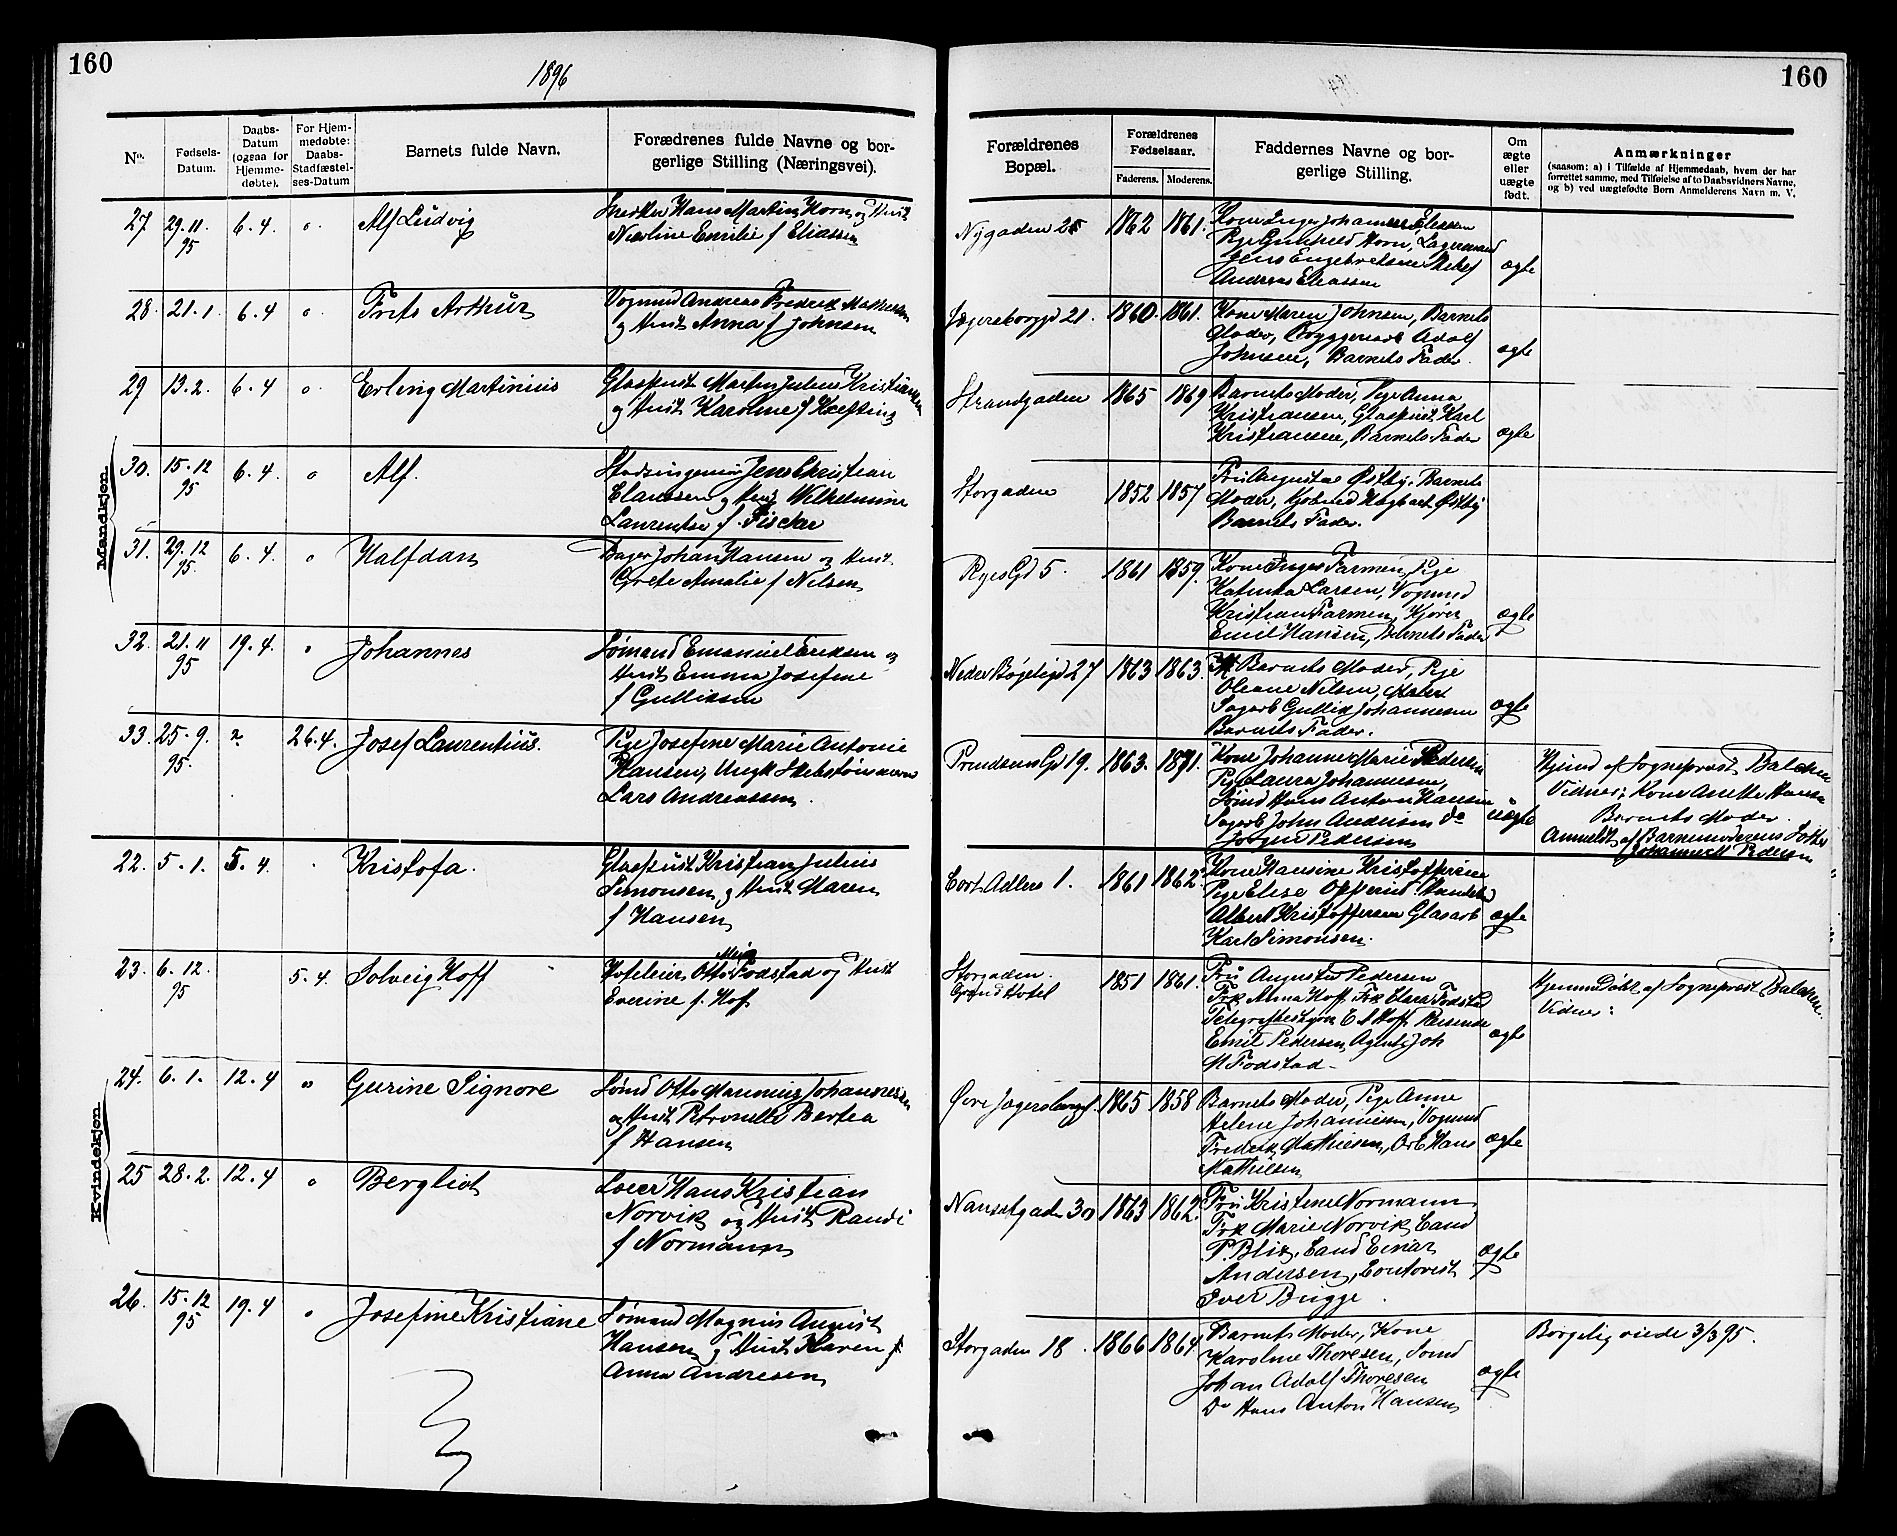 160
1896
No.
Fødsels-
Datum.
Daabs-
Datum
(ogsaa for
Hjemme-
døbte).
For Hjem-
medøbte:
Daabs-
Stadfæstel-
ses-Datum
Barnets fulde Navn.
Forædrenes fulde Navne og bor-
gerlige Stilling (Næringsvei).
Mandkjøn.
27 29.11 95 6.4. Alf Ludvig
Snedker Hans Martin Horn og Hust
Nicoline Emilie f Eliassen
28. 21.1 6.4 Frits Arthur
Vogmnd Andreas Fredrik Mathisen
og Hust Anna f Johnsen
29 13.2. 6.4 Erling Martinius
Glaspust Martin Julius Kristiansen
og Hust Karoline f Krefting
30. 15.12 95 6.4. Alf.
Stadsingeniør Jens Christian
Clausen og Hust Wilhelmine
Laurentse f. Fischer
31. 29.12 95. 6.4. Halfdan
Bager Johan Hansen og Hust.
Grete Amalie f Nilsen
32. 21.11 95 19.4. Johannes
Sømand Emanuel Eriksen og
Hust Emma Josefine
f Gulliksen
33. 25.9. 95. 26.4. Josef Laurentius.
Pige Josefine Marie Antonie
Hansen, Ungk Skibstømmerm
Lars Andreassen.
Kvindekjøn.
22. 5.1. 5.4. Kristofa.
Glaspust Kristian Julius
Simonsen og Hust Maren
f Hansen
23. 6.12. 95 5.4. Solveig Hoff
Hoteleier Otto Fodstad og Hust
Everine f. Hof.
24. 6.1. 12.4 Gurine Signore
Sømd Otto Marinius Johannessen
og Hust Petronelle Bertea
f Hansen
25 28.2. 12.4 Bergliot
Hans Kristian
Norvik og Hust Randi
f Normann
26. 15.12 95 19.4 Josefine Kristiane
Sømand Magnus August
Hansen og Hust Karen f
Anna Andresen
160
Forældrenes
Bopæl.
Forældrenes
Fødselsaar.
Faderens. Moderens.
Faddernes Navne og bor-
gerlige Stilling.
Om
ægte
eller
uægte
født.
Anmærkninger
(saasom: a) i Tilfælde af Hjemmedaab, hvem der har
forrettet samme, med Tilføielse af to Daabsvidners Navne,
og b) ved uægtefødte Børn Anmelderens Navn m. V.
Nygaden 25 1862 1861. Kone Inger Johannesen
Pige Gunhild Horn, Lagermand
Jens Engebretsen
Andreas Eliassen ægte
Jægersborggd 21. 1860. 1861. Kone Maren Johnsen, Barnets
Moder, Bryggeriarb Adolf
Johnsen, Barnets Fader. ægte
Strandgaden 1865 1869 Barnets Moder, Pige Anna
Kristiansen, Glaspust. Karl
Kristiansen, Barnets Fader ægte
Storgaden 1852 1857 Fru Augusta Østby. Barnets
Moder, Kjøbmd Hagbart Østby
Barnets Fader.
Ryes Gd 5. 1861 1859. Kone Inger Farmen, Pige
Katinka Larsen, Vogmnd
Kristian Farmen, Kjører
Emil Hansen, Barnets Fader ægte
Nedre Bøgeligd 27 1863 1863. Barnets Moder, Pige
Oleane Nilsen,
Sagarb Gullik Johannesen
Barnets Fader. ægte
Trudsens Gd 19. 1863. 1871. Kone Johanne Marie Pedersen
Pige Laura Johannesen,
Sømd Hans Anton Hansen
Sagarb John Andersen do
Jørgen Pedersen uægte
Hjemd af Sogneprest Balchen
Vidner; Kone Anette Hansen
Barnets Moder.
Anmeldt af Barnemoderens Søster
Johanne M Pedersen
Cort Adlers 1. 1861 1862. Kone Hansine Kristoffersen
Pige Elise
Albert Kristoffersen Glasarb
Karl Simonsen. ægte
Storgaden.
Grand Hotel 1851 1861. Fru Augusta Pedersen
Frk Alma Hoff Frk Clara Fodstad
Telegrafbestyrer E A Hoff. Reisende
Emil Pedersen, Agent Joh
M Fodstad. ægte
Hjemme Døbt af Sogneprest Balchen.
Vidner:
Øvre Jægersborggd. 1865 1858 Barnets Moder, Pige Anne
Helene Johannesen, Vogmnd
Fredrik Mathiesen, Arb Hans
Mathiesen ægte
Nansetgaden 30 1863 1862. Fru Kristine Normann
Frk Marie Norvik, Cand
P. Blix, Cand Einar
Andersen, Contorist
Iver Bugge. ægte
Storgaden 18. 1866 1864 Barnets Moder, Kone
Karoline Thoresen, Sømd
Johan Adolf Thoresen
Do Hans Anton Hansen ægte
Borgelig viede 3/3 95.